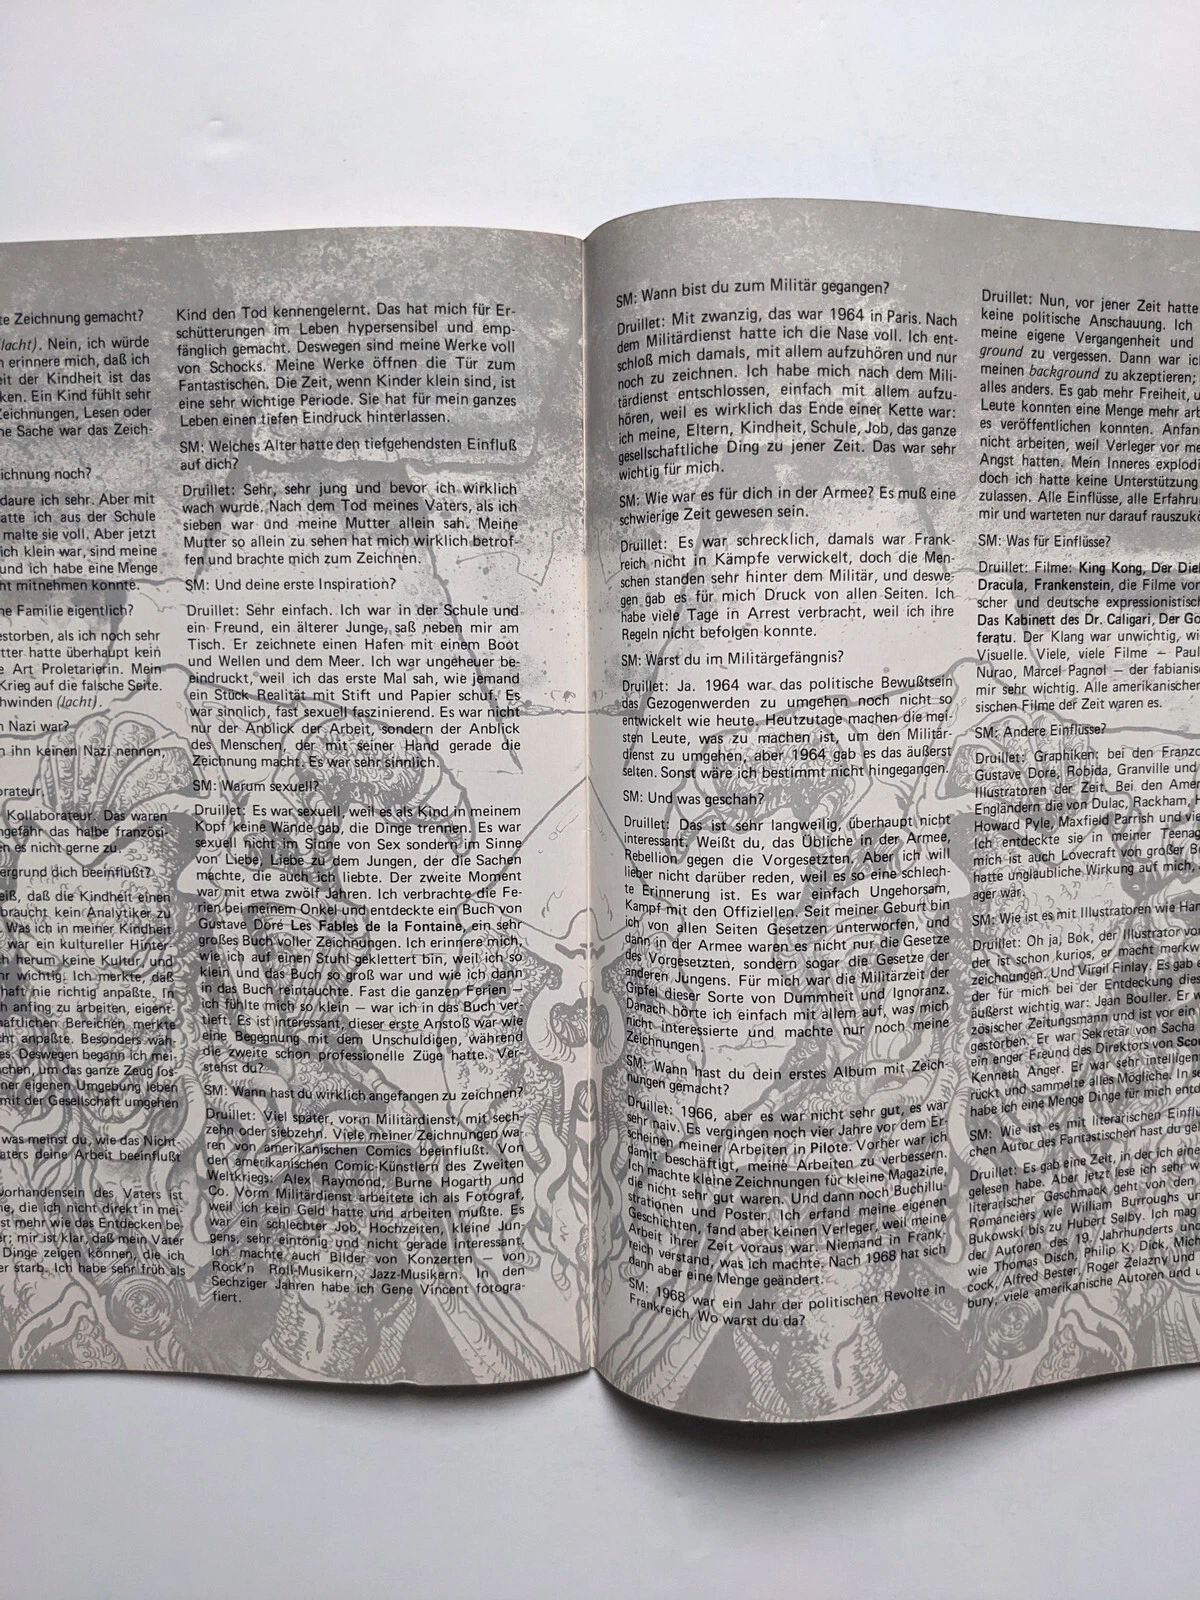 te Zeichnung gemacht?
(lacht). Nein, ich würde
erinnere mich, daß ich
eit der Kindheit ist das
ken. Ein Kind fühlt sehr
Zeichnungen, Lesen oder
ne Sache war das Zeich-
eichnung noch?
daure ich sehr. Aber mit
atte ich aus der Schule
malte sie voll. Aber jetzt
ich klein war, sind meine
und ich habe eine Menge
ht mitnehmen konnte.
ne Familie eigentlich?
estorben, als ich noch sehr
tter hatte überhaupt kein
e Art Proletarierin. Mein
Krieg auf die falsche Seite.
chwinden (lacht).
n Nazi war?
n ihn keinen Nazi nennen,
orateur.
Kollaborateur. Das waren
ngefähr das halbe französi-
en es nicht gerne zu.
ergrund dich beeinflußt?
eiß, daß die Kindheit einen
braucht kein Analytiker zu
Was ich in meiner Kindheit
war ein kultureller Hinter-
h herum keine Kultur, und
hr wichtig. Ich merkte, daß
haft nie richtig anpaßte. In
h anfing zu arbeiten, eigent-
haftlichen Bereichen merkte
cht anpaßte. Besonders wäh-
es. Deswegen begann ich mei-
chen, um das ganze Zeug los-
ner eigenen Umgebung leben
mit der Gesellschaft umgehen
was meinst du, wie das Nicht-
aters deine Arbeit beeinflußt
vorhandensein des Vaters ist
he, die ich nicht direkt in mei-
st mehr wie das Entdecken be-
er; mir ist klar, daß mein Vater
Dinge zeigen können, die ich
er starb. Ich habe sehr früh als
Kind den Tod kennengelernt. Das hat mich für Er-
schütterungen im Leben hypersensibel und emp-
fänglich gemacht. Deswegen sind meine Werke voll
von Schocks. Meine Werke öffnen die Tür zum
Fantastischen. Die Zeit, wenn Kinder klein sind, ist
eine sehr wichtige Periode. Sie hat für mein ganzes
Leben einen tiefen Eindruck hinterlassen.
SM: Welches Alter hatte den tiefgehendsten Einfluß
auf dich?
Druillet: Sehr, sehr jung und bevor ich wirklich
wach wurde. Nach dem Tod meines Vaters, als ich
sieben war und meine Mutter allein sah. Meine
Mutter so allein zu sehen hat mich wirklich betrof-
fen und brachte mich zum Zeichnen.
SM: Und deine erste Inspiration?
Druillet: Sehr einfach. Ich war in der Schule und
ein Freund, ein älterer Junge, saß neben mir am
Tisch. Er zeichnete einen Hafen mit einem Boot
und Wellen und dem Meer. Ich war ungeheuer be-
eindruckt, weil ich das erste Mal sah, wie jemand
ein Stück Realität mit Stift und Papier schuf. Es
war sinnlich, fast sexuell faszinierend. Es war nicht
nur der Anblick der Arbeit, sondern der Anblick
des Menschen, der mit seiner Hand gerade die
Zeichnung macht. Es war sehr sinnlich.
SM: Warum sexuell?
Druillet: Es war sexuell, weil es als Kind in meinem
Kopf keine Wände gab, die Dinge trennen. Es war
sexuell nicht im Sinne von Sex sondern im Sinne
von Liebe, Liebe zu dem Jungen, der die Sachen
machte, die auch ich liebte. Der zweite Moment
war mit etwa zwölf Jahren. Ich verbrachte die Fe-
rien bei meinem Onkel und entdeckte ein Buch von
Gustave Doré Les Fables de la Fontaine, ein sehr
großes Buch voller Zeichnungen. Ich erinnere mich,
wie ich auf einen Stuhl geklettert bin, weil ich so
klein und das Buch so groß war und wie ich dann
in das Buch reintauchte. Fast die ganzen Ferien –
ich fühlte mich so klein – war ich in das Buch ver-
tieft. Es ist interessant, dieser erste Anstoß war wie
eine Begegnung mit dem Unschuldigen, während
die zweite schon professionelle Züge hatte. Ver-
stehst du?
SM: Wann hast du wirklich angefangen zu zeichnen?
Druillet: Viel später, vorm Militärdienst, mit sech-
zehn oder siebzehn. Viele meiner Zeichnungen wa-
ren von amerikanischen Comics beeinflußt. Von
den amerikanischen Comic-Künstlern des Zweiten
Weltkriegs: Alex Raymond, Burne Hogarth und
Co. Vorm Militärdienst arbeitete ich als Fotograf,
weil ich kein Geld hatte und arbeiten mußte. Es
war ein schlechter Job, Hochzeiten, kleine Jun-
gens, sehr eintönig und nicht gerade interessant.
Ich machte auch Bilder von Konzerten – von
Rock'n Roll-Musikern, Jazz-Musikern. In den
Sechziger Jahren habe ich Gene Vincent fotogra-
fiert.
SM: Wann bist du zum Militär gegangen?
Druillet: Mit zwanzig, das war 1964 in Paris. Nach
dem Militärdienst hatte ich die Nase voll. Ich ent-
schloß mich damals, mit allem aufzuhören und nur
noch zu zeichnen. Ich habe mich nach dem Mili-
tärdienst entschlossen, einfach mit allem aufzu-
hören, weil es wirklich das Ende einer Kette war:
ich meine, Eltern, Kindheit, Schule, Job, das ganze
gesellschaftliche Ding zu jener Zeit. Das war sehr
wichtig für mich.
SM: Wie war es für dich in der Armee? Es muß eine
schwierige Zeit gewesen sein.
Druillet: Es war schrecklich, damals war Frank-
reich nicht in Kämpfe verwickelt, doch die Men-
schen standen sehr hinter dem Militär, und deswe-
gen gab es für mich Druck von allen Seiten. Ich
habe viele Tage in Arrest verbracht, weil ich ihre
Regeln nicht befolgen konnte.
SM: Warst du im Militärgefängnis?
Druillet: Ja. 1964 war das politische Bewußtsein
das Gezogenwerden zu umgehen noch nicht so
entwickelt wie heute. Heutzutage machen die mei-
sten Leute, was zu machen ist, um den Militär-
dienst zu umgehen, aber 1964 gab es das äußerst
selten. Sonst wäre ich bestimmt nicht hingegangen.
SM: Und was geschah?
Druillet: Das ist sehr langweilig, überhaupt nicht
interessant. Weißt du, das Übliche in der Armee,
Rebellion gegen die Vorgesetzten. Aber ich will
lieber nicht darüber reden, weil es so eine schlech-
te Erinnerung ist. Es war einfach Ungehorsam,
Kampf mit den Offiziellen. Seit meiner Geburt bin
ich von allen Seiten Gesetzen unterworfen, und
dann in der Armee waren es nicht nur die Gesetze
des Vorgesetzten, sondern sogar die Gesetze der
anderen Jungens. Für mich war die Militärzeit der
Gipfel dieser Sorte von Dummheit und Ignoranz.
Danach hörte ich einfach mit allem auf, was mich
nicht interessierte und machte nur noch meine
Zeichnungen.
SM: Wann hast du dein erstes Album mit Zeich-
nungen gemacht?
Druillet: 1966, aber es war nicht sehr gut, es war
sehr naiv. Es vergingen noch vier Jahre vor dem Er-
scheinen meiner Arbeiten in Pilote. Vorher war ich
damit beschäftigt, meine Arbeiten zu verbessern.
Ich machte kleine Zeichnungen für kleine Magazine,
die nicht sehr gut waren. Und dann noch Buchillu-
strationen und Poster. Ich erfand meine eigenen
Geschichten, fand aber keinen Verleger, weil meine
Arbeit ihrer Zeit voraus war. Niemand in Frank-
reich verstand, was ich machte. Nach 1968 hat sich
dann aber eine Menge geändert.
SM: 1968 war ein Jahr der politischen Revolte in
Frankreich. Wo warst du da?
Druillet: Nun, vor jener Zeit hatte
keine politische Anschauung. Ich
meine eigene Vergangenheit und
ground zu vergessen. Dann war ic
meinen background zu akzeptieren;
alles anders. Es gab mehr Freiheit, u
Leute konnten eine Menge mehr arb
es veröffentlichen konnten. Anfan
nicht arbeiten, weil Verleger vor me
Angst hatten. Mein Inneres explodi
doch ich hatte keine Unterstützung
zulassen. Alle Einflüsse, alle Erfahru
mir und warteten nur darauf rauszukö
SM: Was für Einflüsse?
Druillet: Filme: King Kong, Der Die
Dracula, Frankenstein, die Filme vor
scher und deutsche expressionistisc
Das Kabinett des Dr. Caligari, Der Go
feratu. Der Klang war unwichtig, wi
Visuelle. Viele, viele Filme – Paul
Nurao, Marcel Pagnol – der fabianis
mir sehr wichtig. Alle amerikanischer
sischen Filme der Zeit waren es.
SM: Andere Einflüsse?
Druillet: Graphiken: bei den Franzo
Gustave Dore, Robida, Granville und
Illustratoren der Zeit. Bei den Amer
Engländern die von Dulac, Rackham, H
Howard Pyle, Maxfield Parrish und vie
Ich entdeckte sie in meiner Teenag
mich ist auch Lovecraft von großer B
hatte unglaubliche Wirkung auf mich,
ager war.
SM: Wie ist es mit Illustratoren wie Han
Druillet: Oh ja, Bok, der Illustrator vo
der ist schon kurios, er macht merkw
zeichnungen. Und Virgil Finlay. Es gab e
der für mich bei der Entdeckung dies
äußerst wichtig war: Jean Bouller. Er w
zösischer Zeitungsmann und ist vor ein
gestorben. Er war Sekretär von Sacha
ein enger Freund des Direktors von Scor
Kenneth Anger. Er war sehr intelligen
rückt und sammelte alles Mögliche. In se
habe ich eine Menge Dinge für mich ento
SM: Wie ist es mit literarischen Einflü
chen Autor des Fantastischen hast du gel
Druillet: Es gab eine Zeit, in der ich eine
gelesen habe. Aber jetzt lese ich sehr w
literarischer Geschmack geht von den
Romanciers wie William Burroughs u
Bukowski bis zu Hubert Selby. Ich mag
der Autoren des 19. Jahrhunderts und
wie Thomas Disch, Philip K. Dick, Mich
cock, Alfred Bester, Roger Zelazny und
bury, viele amerikanische Autoren und u